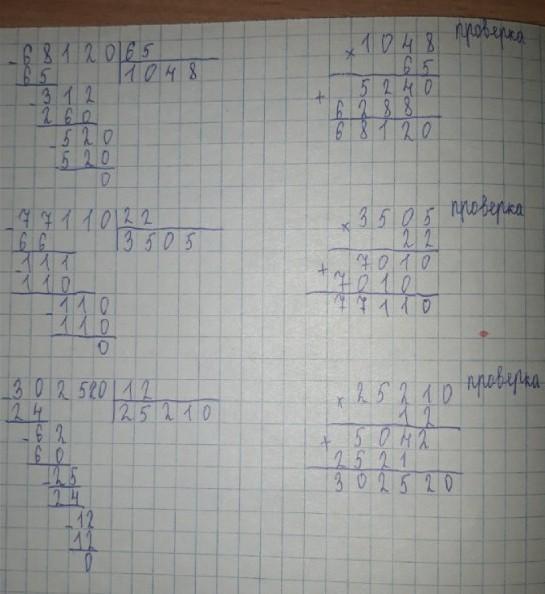 68120 65 1048 проверка
65 1048 65
312 5240
260 6288
520 68120
520
0
77110 22 3505 проверка
66 3505 22
111 7010
110 7010
110 77110
110
0
302520 12 25210 проверка
24 25210 12
62 5042
60 2521
25 302520
24
12
12
0